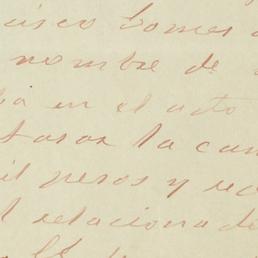 cisco Gomes
nombre de
en el acto
tasar la can
il pesos y re
l relacionad